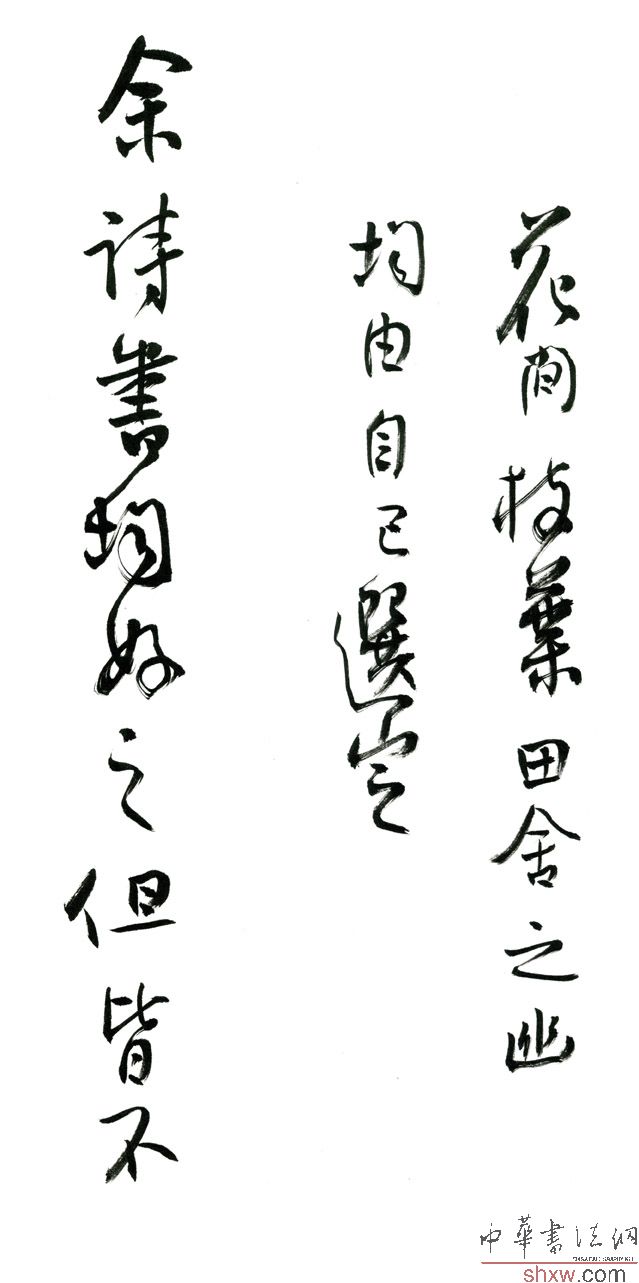 花間枝葉田舍之幽
均由自己選定
余詩書均好之但皆不
中華書法網
shxw.com